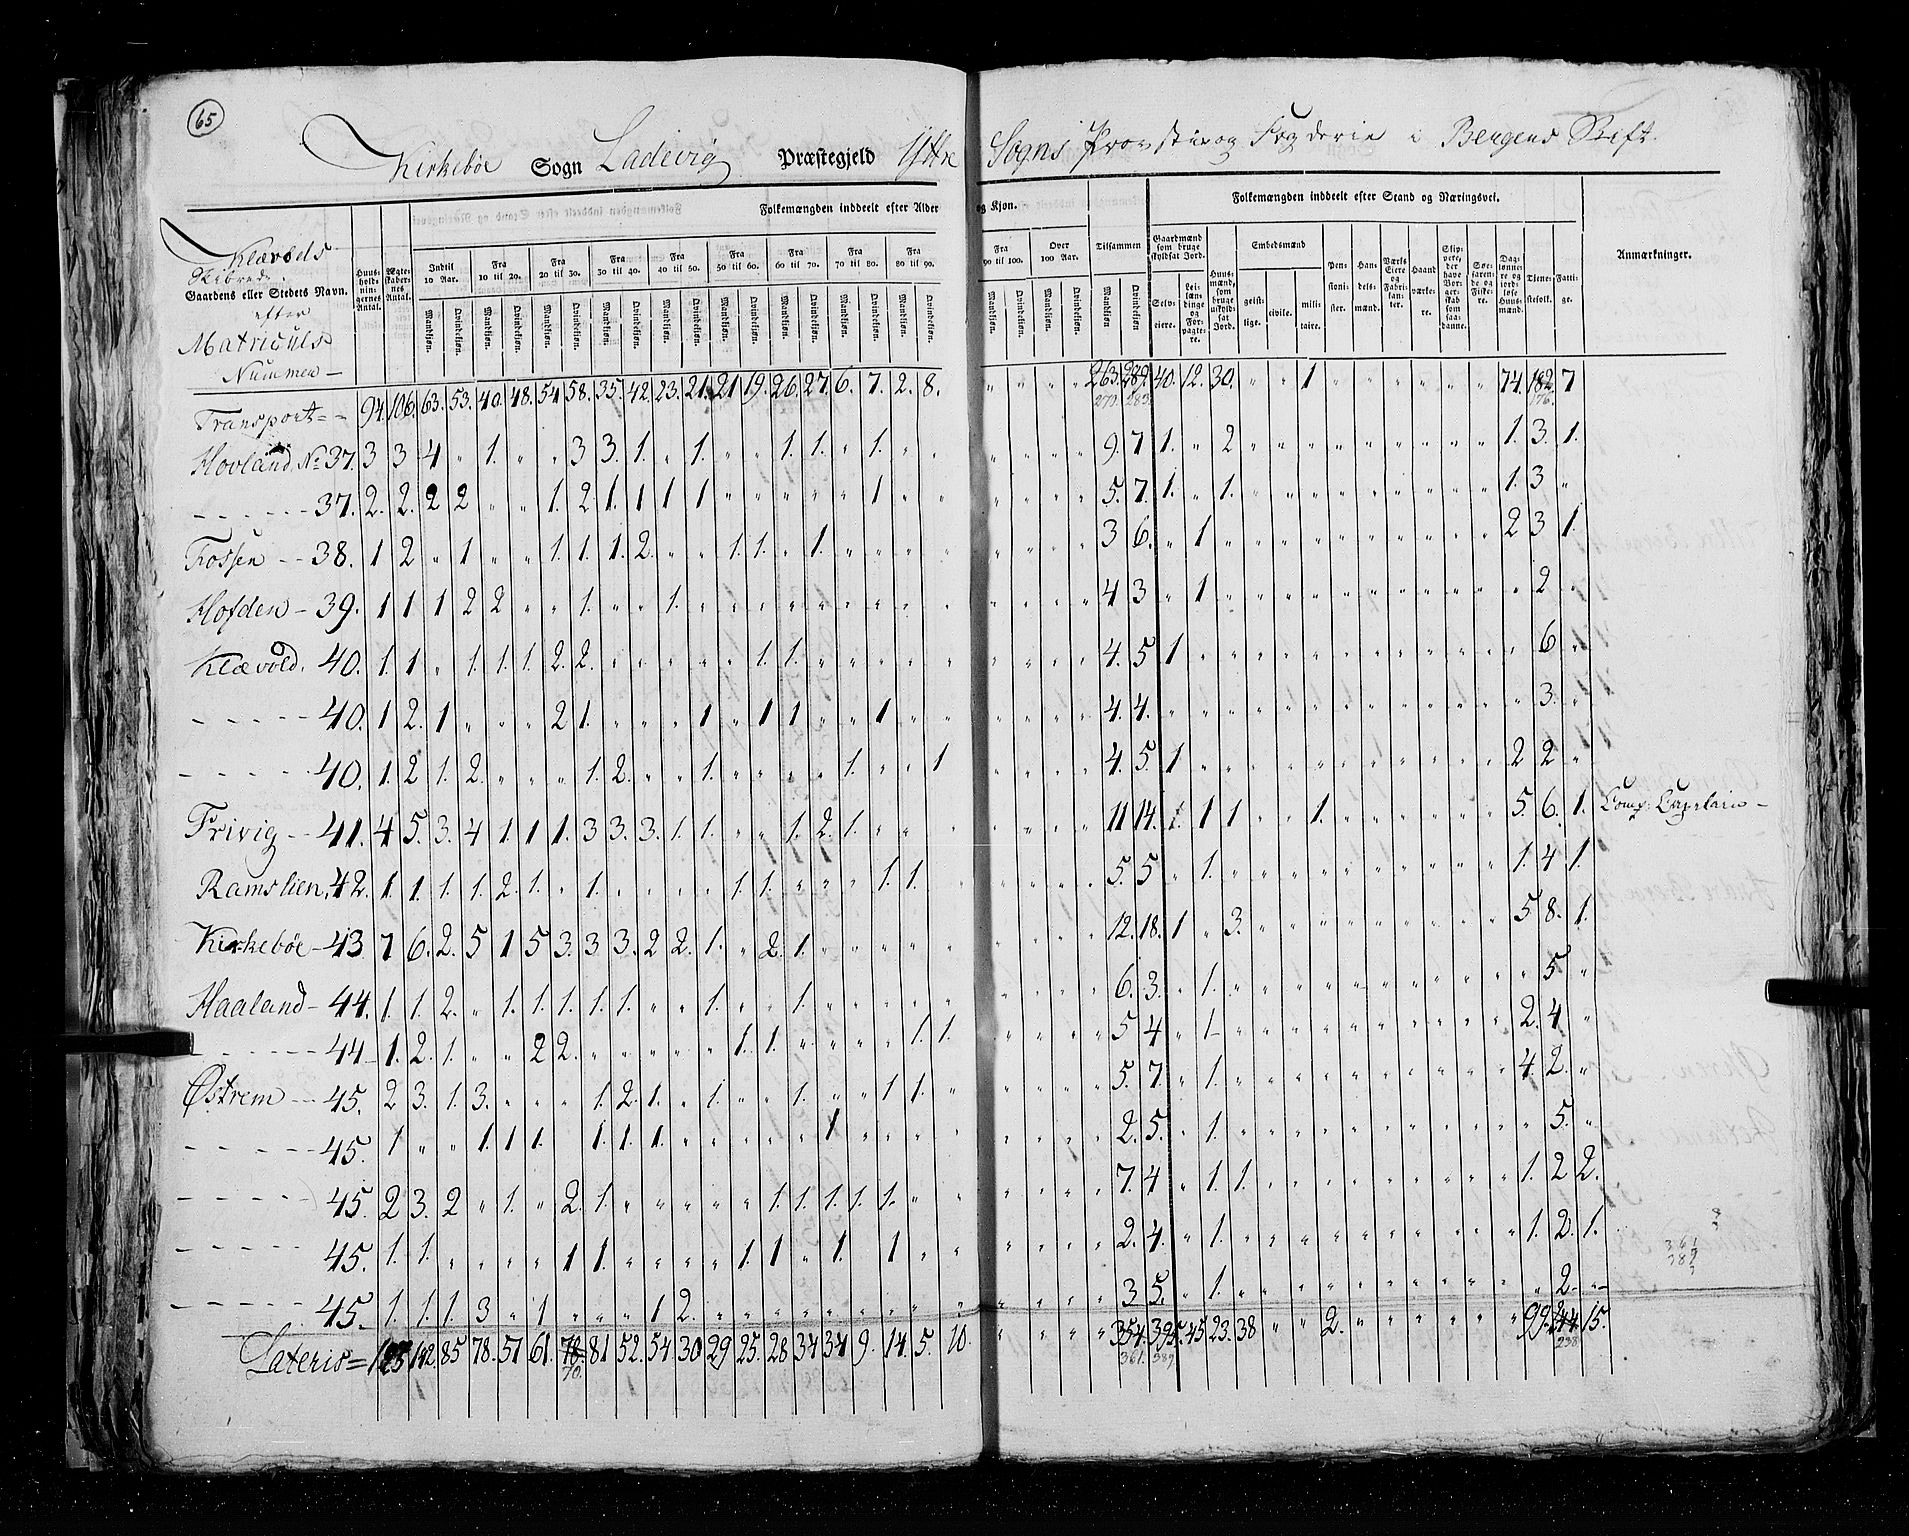 65
Kirkebøe Sogn Ladevig Præstegjeld Yttre Sogns Provstie og Fogderie i Bergens Stift.
Folkemængden inddeelt efter Alder og Kjøn. Folkemængden inddeelt efter Stand og Næringsvei.
Klævolds
Skibrede.
Gaardens eller Stedets Navn.
efter
Matriculs
Nummer —
Huusholdningernes Antal. Ægteskabernes Antal.
Indtil 10 Aar. Fra 10 til 20. Fra 20 til 30. Fra 30 til 40. Fra 40 til 50. Fra 50 til 60. Fra 60 til 70. Fra 70 til 80. Fra 80 til 90. Fra 90 til 100. Over 100 Aar. Tilsammen
Mandkjøn. Qvindekjøn. Mandkjøn. Qvindekjøn. Mandkjøn. Qvindekjøn. Mandkjøn. Qvindekjøn. Mandkjøn. Qvindekjøn. Mandkjøn. Qvindekjøn. Mandkjøn. Qvindekjøn. Mandkjøn. Qvindekjøn. Mandkjøn. Qvindekjøn. Mandkjøn. Qvindekjøn. Mandkjøn. Qvindekjøn. Mandkjøn. Qvindekjøn.
Gaardmænd som bruge skyldsat Jord. Selveiere. Leilændinge og Forpagtere. Huusmænd, som bruge uskyldsat Jord. Embedsmænd geistlige. civile. militaire. Pensionister. Handelsmænd. Værks Eiere og Fabrikanter. Haandværkere. Skippere, der have Borgerskab som saadanne. Søefarende og Fiskere. Daglønnere og jordløse Huusmænd. Tienestefolk. Fattige. Anmærkninger.
Transport = - 94. 106. 63. 53. 40. 48. 54 58. 35. 42. 23. 21. 21 19. 26. 27. 6. 7. 2. 8. " " " " 263. 289. 40. 12. 30. " " 1 " " " " " " 74. 182. 7
270. 283. 176.
Hovland. No 37. 3 3 4 " 1. " " 3 3. 1. " 1. " " 1. 1. " 1. " " " " " " 9. 7 1. " 2 " " " " " " " " " " 1. 3. 1.
- - - - - - 37. 2. 2. 2 2 " " 1. 2 1. 1 1 1 " " " " " 1 " " " " " " 5. 7. 1. " 1. " " " " " " " " " " 1. 3 "
Fossen - - 38. 1 2 " 1 " " 1. 1. 1. 2. " " 1. 1. " 1. " " " " " " " " 3 6. " 1 " " " " " " " " " " " 2 3 1.
Hofden - 39. 1 1 1 2 2 " " 1. " " 1. " " " " " " " " " " " " " 4 3 " 1 " " " " " " " " " " " " 2 "
Klævold. 40. 1. 1 " 1. 1. 1. 2. 2. " " " " " 1. 1. " " " " " " " " " 4. 5 1 " " " " " " " " " " " " " 6 "
- - - - - 40. 1 2. 1 " " " 2 1. " " " 1 " 1 1 " " 1 " " " " " " 4. 4. " " " " " " " " " " " " " " 3. "
- - - - - 40. 1. 2 1. 2. " " " 1. 2. " " 1. " " " " 1. " " 1 " " " " 4. 5. 1 " " " " " " " " " " " " 2 2 "
Trivig - - 41. 4 5. 3. 4 1 1 1. 3 3. 3. 1. 1. " " 1. 2. 1. " " " " " " " 11 14. 1. 1 1 " " 1. " " " " " " 5. 6. 1. Comp: Capitain -
Ramslien. 42. 1 1. 1. 1. 2. 1. " 1. " " " " 1. 1. " " " 1. 1. " " " " " 5. 5 " 1. " " " " " " " " " " " 1. 4 1.
Kirkebøe - 43 7 6. 2. 5 1 5 3. 3 3. 2 2. 1. " 2. 1. " " " " " " " " " 12. 18. 1 " 3. " " " " " " " " " " 5 8. 1.
Haaland - 44. 1. 1. 2. " 1. 1. 1. 1. 1. " " 1. " " 1. " " " " " " " " " 6. 3. " 1. " " " " " " " " " " " " 5 "
- - - - - - 44. 1. 2. 1. " " 2 2. " " " " " 1. 1. " " " " 1. 1. " " " " 5 4 " 1. " " " " " " " " " " " 2. 4 "
Østrem - - - 45. 2 3. 1. 3. " " " 1. 2. 1. " 1. " " 1. " " 1 1. " " " " " 5. 7. " 1. " " " " " " " " " " " 4. 2. "
- - - - - 45. 1 " " 1. 1 1. " 1. 1. 1. " " " " " 1 " " " " " " " " 2. 5. " 1. " " " " " " " " " " " " 5. "
- - - - - 45. 2 3. 2 " 1. " 2. 1. " " " " " 1. 1. 1. 1. 1. " " " " " " 7. 4 " 1. 1. " " " " " " " " " " 1. 2 2.
- - - - - 45. 1. 1. " " " " 1 1. " " " " 1 1 " 1. " 1 " " " " " " 2. 4. " 1. " " " " " " " " " " " 1. 2. 1.
- - - - - - 45. 1. 1. 1. 3 " 1 " " " 1 2. " " " " " " " " " " " " " 3 5. " 1. " " " " " " " " " " " " 2 - "
Lateris = 123 142. 85 78. 51 61. 78. 81 52. 54 30 29 25. 28 34 34 9. 14. 5. 10. " " " " 354. 395. 45 23. 38 " " 2. " " " " " " 99. 244 15.
70. 361. 389. 238
361
389